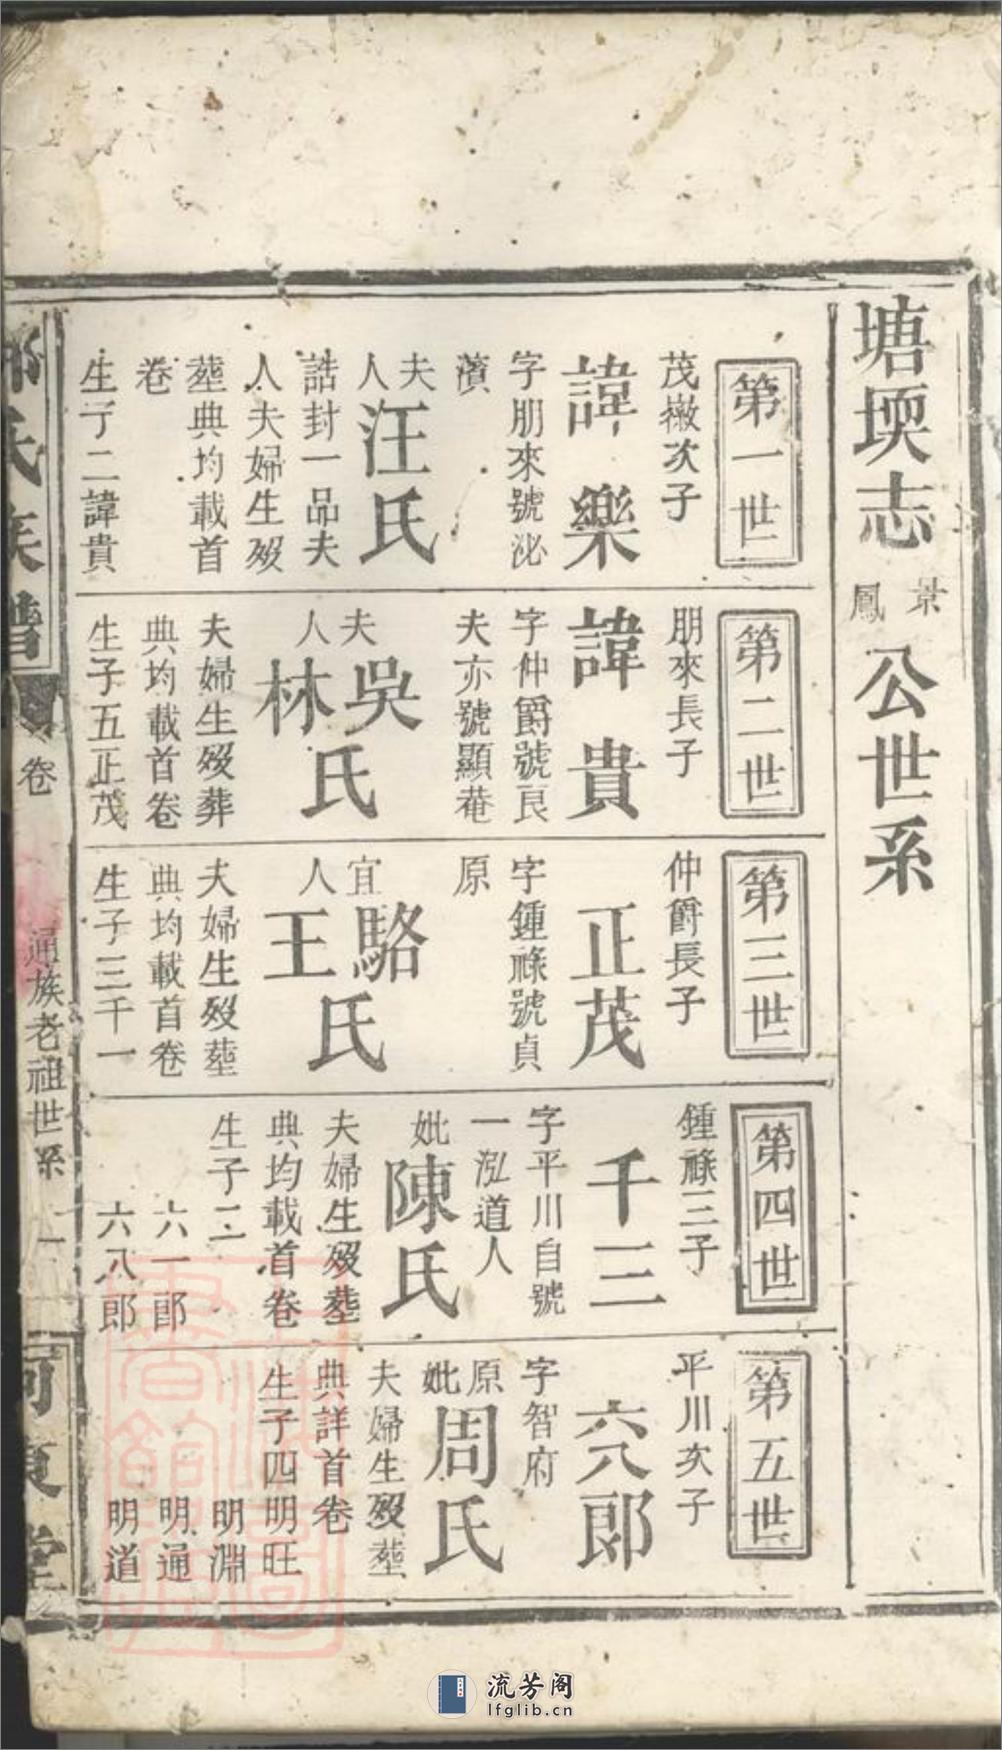 塘堧志景鳳公世系
第一世
茂檄次子
諱樂
字朋來號泌
濱
夫人汪氏
誥封一品夫
人夫婦生歿
塟典均載首
卷
生子二諱貴
第二世
朋來長子
諱貴
字仲爵號良
夫亦號顯菴
夫人吳林氏
夫婦生歿葬
典均載首卷
生子五正茂
第三世
仲爵長子
正茂
字鍾祿號貞
原
宜人駱王氏
夫婦生歿塟
典均載首卷
生子三千一
第四世
鍾祿三子
千三
字平川自號
一泓道人
妣陳氏
夫婦生歿塟
典均載首卷
生子二
六一郎
六八郎
第五世
平川次子
六八郎
字智府
原妣周氏
夫婦生歿塟
典詳首卷
生子四明旺
明淵
明通
明道
氏族譜
卷
通族老祖世系
一
東堂
流芳阁
lfglib.cn